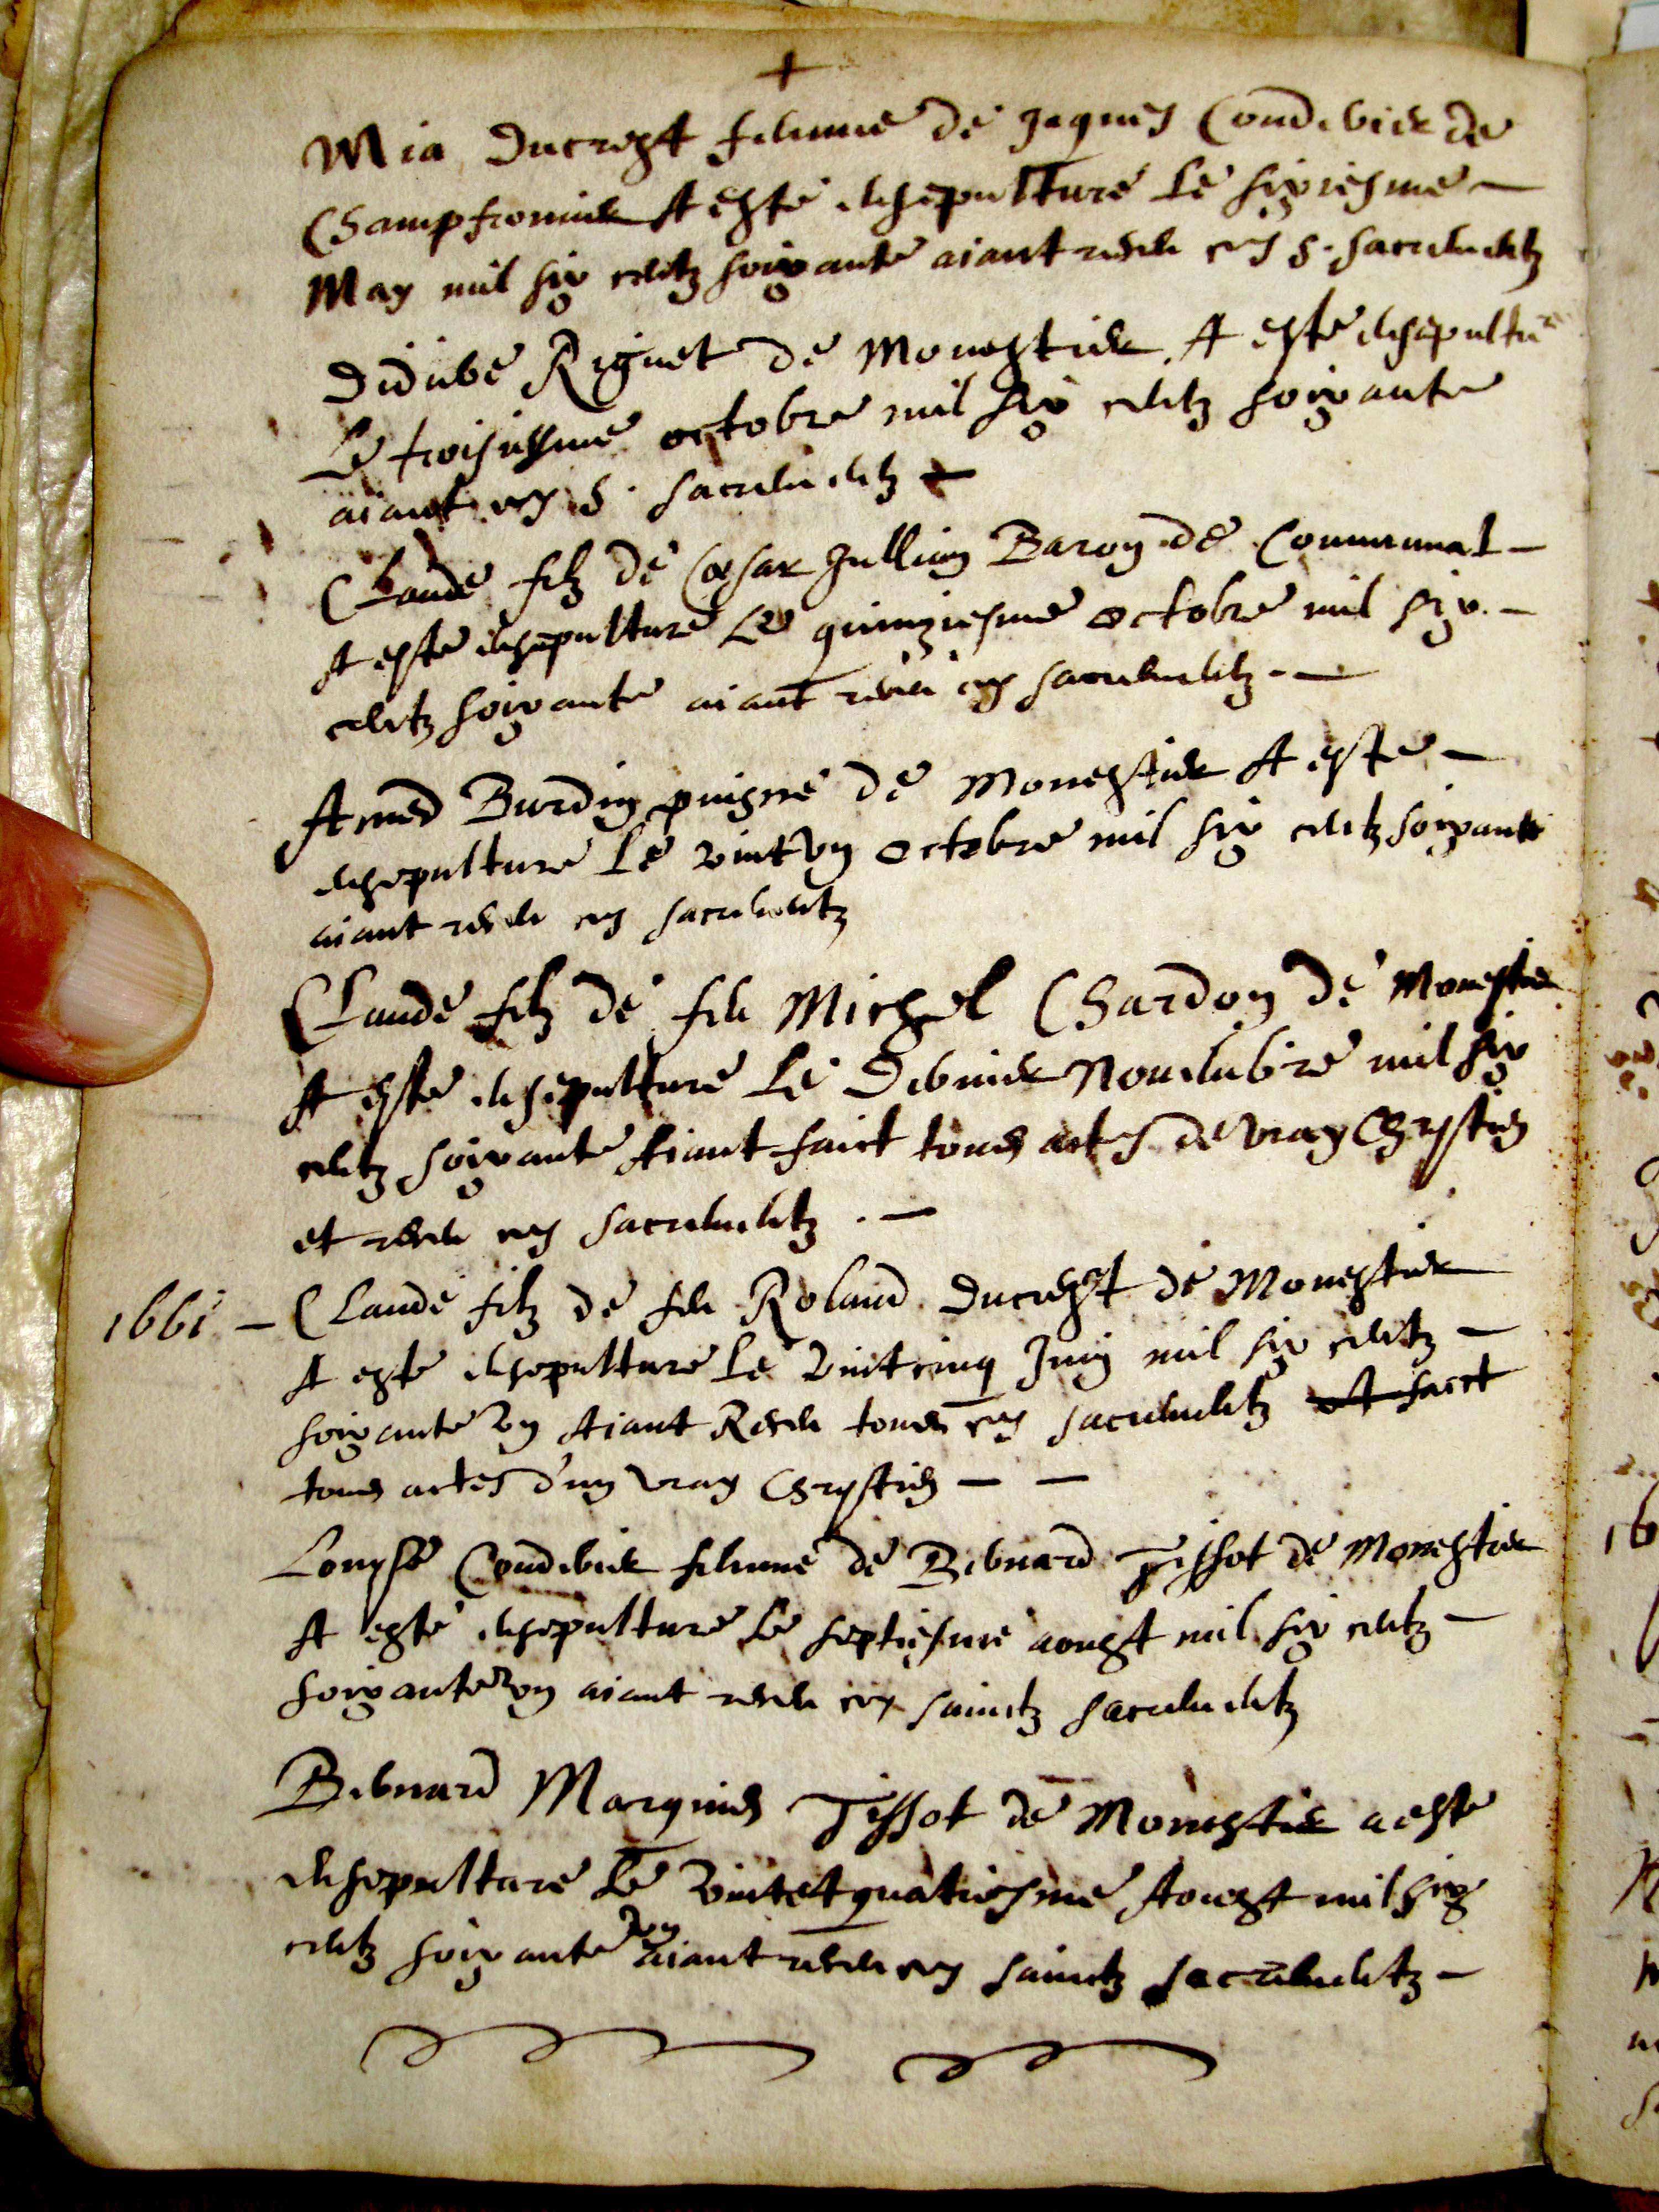 +
Mia Ducrest femme de Jaques Condevier de
Champfromier A esté ensepulturé le sixiesme -
May mil six centz soixante aiant receu ces S. sacrementz
Didiere Riguet de Monestier A esté ensepulturé
Le troisiesme octobre mil six centz soixante
aiant ces S. sacrementz +
Claude filz de Cesar Jullian Baron de Communal -
A esté ensepulturé Le quinziesme octobre mil six -
centz soixante aiant receu ces sacrementz . -
Amed Burdin puisné de Monestier A esté -
ensepulturé Le vint un octobre mil six centz soixante
aiant receu ces sacrementz
Claude filz de feu Michel Chardon de Monestier
A esté ensepulturé Le Dernier Novembre mil six
centz soixante Aiant faict tous actes de vray Chrystien
et receu ces sacrementz . -
1661 - Claude filz de feu Roland Ducrest de Monestier
A esté ensepulturé Le vint cinq Juin mil six centz -
soixante un Aiant Receu tous ces sacrementz et faict
tous actes d'un vray Chrystien - -
Louyse Condevier femme de Bernard Tissot de Monestier
A esté ensepulturé Le septiesme aougst mil six centz -
soixante un aiant receu ces sainctz sacrementz
Bernard Marquis Tissot de Monestier a esté
ensepulturé Le vintetquatriesme Aougst mil six
centz soixante un aiant receu ces sainctz sacrementz -